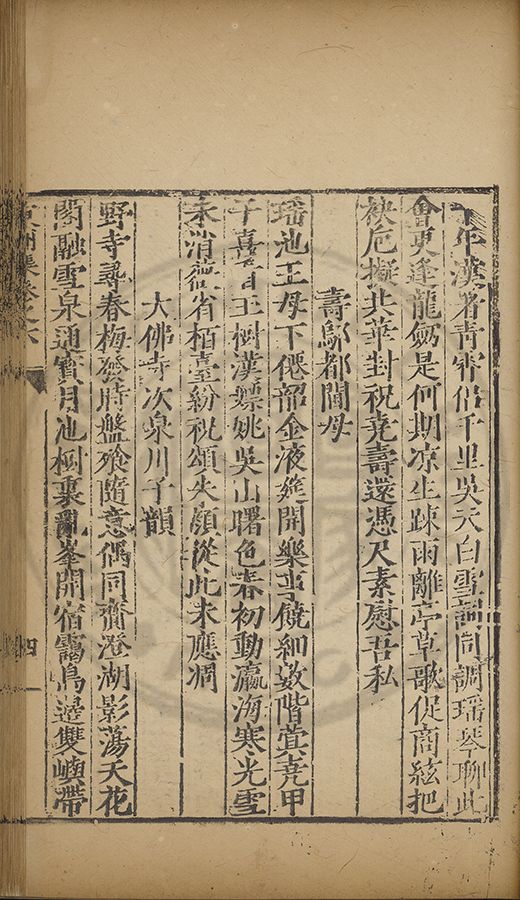 年漢署青宵侶千里吳天白雪詞同調瑤琴聊此
會更逢龍劔是何期凉生踈雨離亭草歌促商絃把
袂巵擬北華封祝堯壽還憑尺素慰吾私
壽鄔都閫母
瑤池王母下僊韶金液筵開樂事饒細數階蓂堯甲
子喜看王樹漢嫖姚吳山曙色春初動瀛海寒光雪
未消薇省栢臺紛祝頌朱顏從此未應凋
大佛寺次泉川子韻
野寺尋春梅發時盤飧隨意偶同齋澄湖影蕩天花
閣融雪泉通寳月池樹裏亂峯開宿靄鳥邊雙嶼帶
集卷之六
四